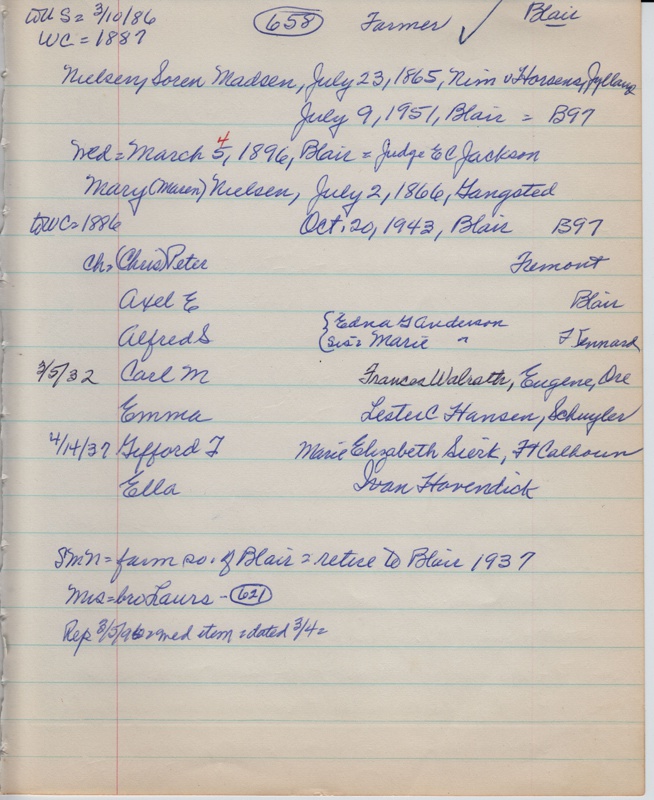 to U S = 3/10/86 658 Farmer ✓ Blair
WC = 1887
Nielsen, Soren Madsen, July 23, 1865, Nim v Horsens, Jylland
July 9, 1951, Blair = B97
Wed = March 5, 1896, Blair = Judge E C Jackson
4
Mary (Maren) Nielsen, July 2, 1866, Gangsted
to WC = 1886 Oct. 20, 1943, Blair B97
Ch = (Chris) Peter Fremont
Axel E Blair
Alfred S { Edna G Anderson
(sis = Marie " F Kennard
3/5/32 Carl M Frances Walrath, Eugene, Ore
Emma Lester C Hansen, Schuyler
4/14/37 Gifford F Marie Elizabeth Sierk, Ft Calhoun
Ella Ivan Hovendick
SMN = farm so. of Blair = retire to Blair 1937
Mrs = bro Laurs - 621
Rep 3/5/96 = wed item = dated 3/4 =